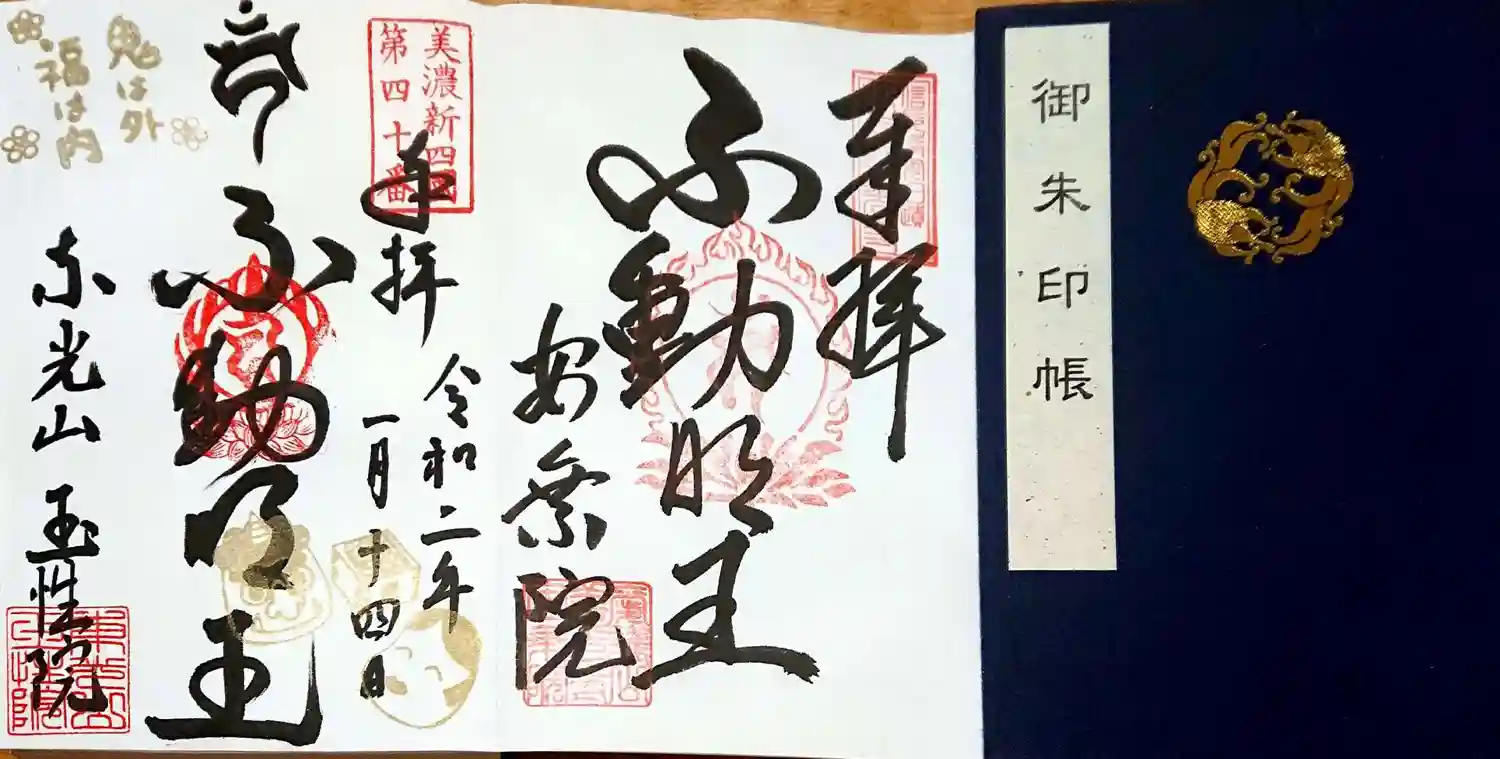 御朱印帳
奉拝
不動明王
安楽院
美濃新四国
第四十番
奉拝
令和二年
一月十四日
不動明王
東光山 玉性院
鬼は外
福は内